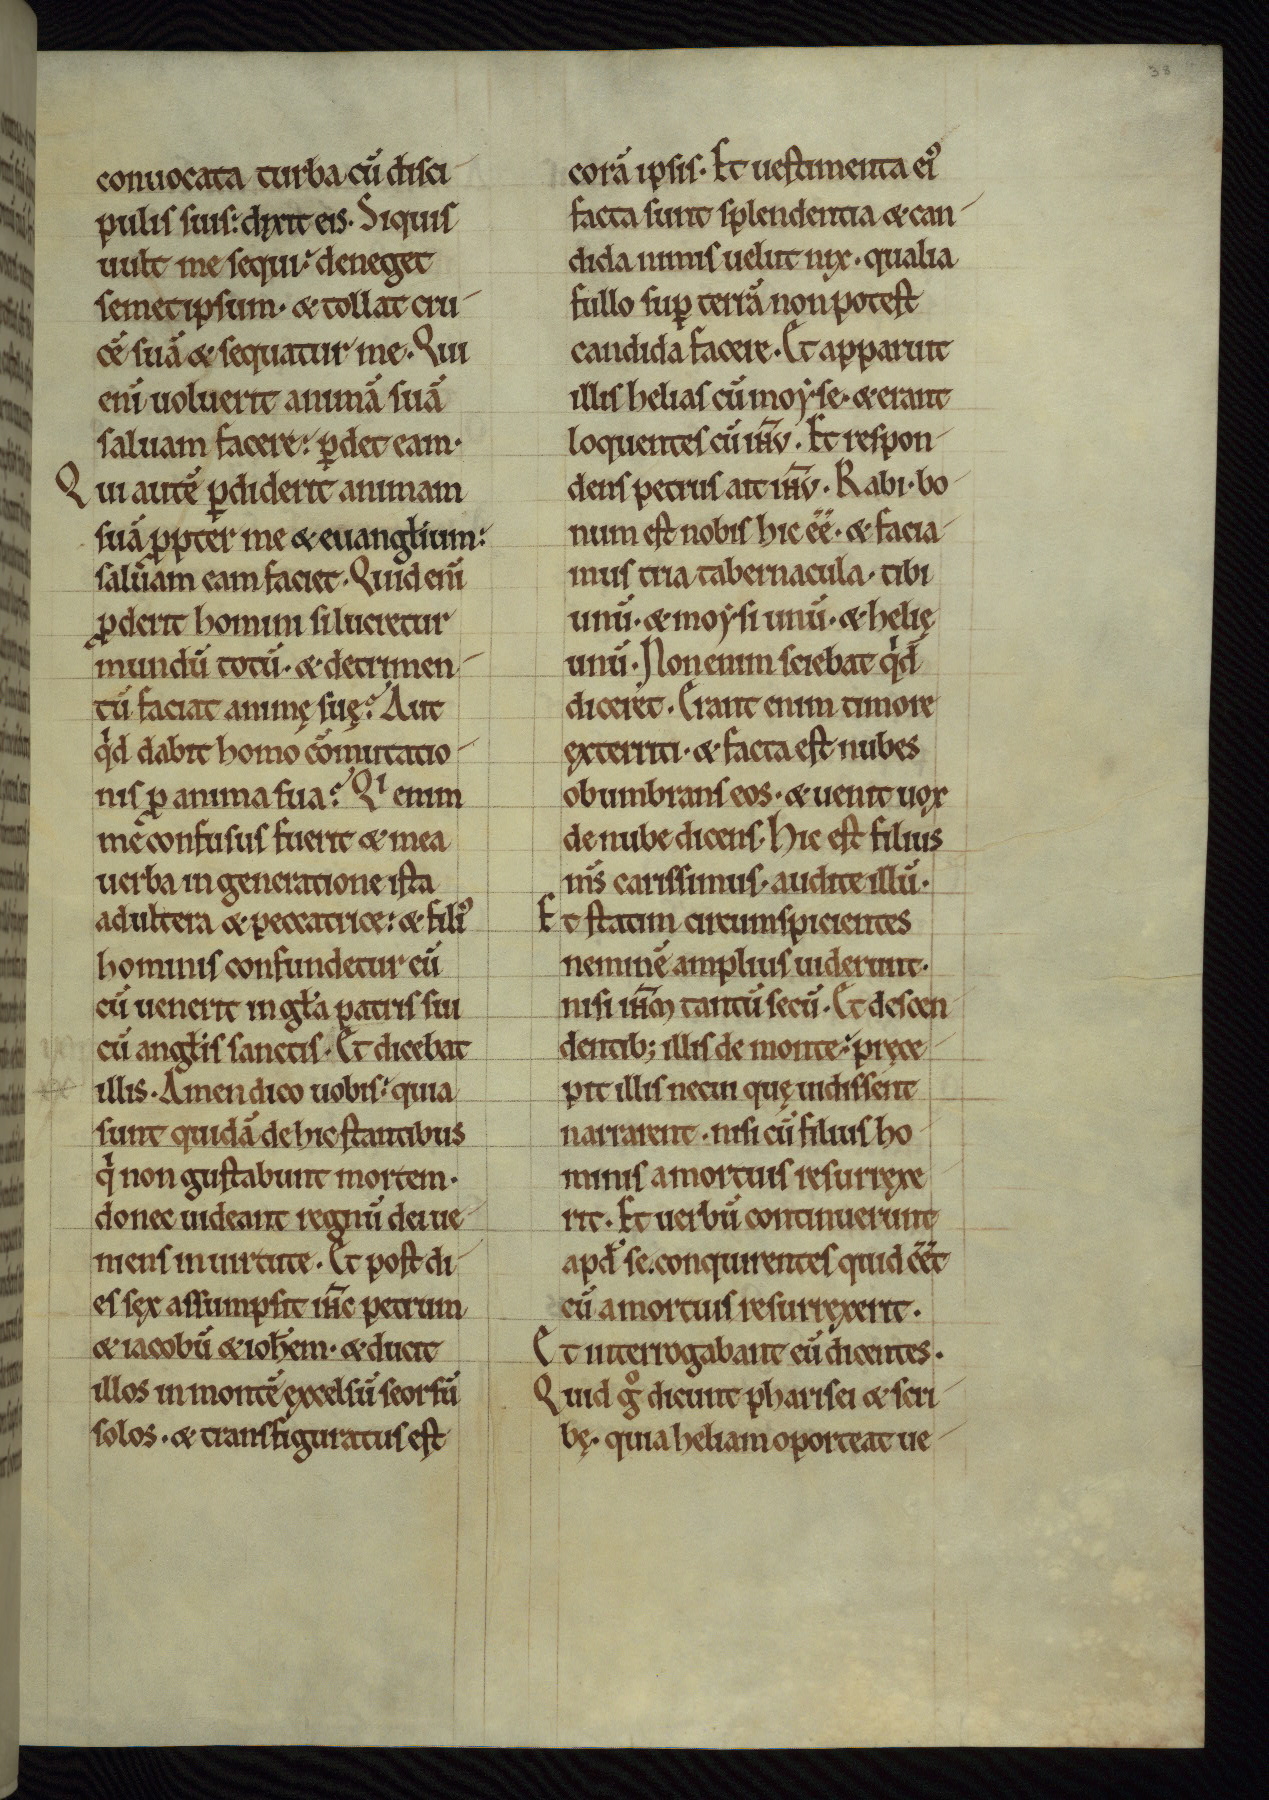 38
conuocata turba cũ disci
pulis suis: dixit eis. Siquis
uult me sequi: deneget
semetipsum. & tollat cru
cẽ suã & sequatur me. Qui
eni̅ uoluerit animã suã
saluam facere: ꝑdet eam.
Qui autẽ ꝑdiderit animam
suã ꝓpter me & euangłium:
saluam eam faciet. Quid eni̅
ꝓderit homini si lucretur
mundũ totũ. & detrimen
tũ faciat animę suę? Aut
qͥd dabit homo cõmutatio
nis ꝓ anima sua? Qͥ enim
me confusus fuerit & mea
uerba in generatione ista
adultera & peccatrice: & filiꝰ
hominis confundetur eũ
cũ uenerit in gła patris sui
cũ angłis sanctis. Et dicebat
illis. Amen dico uobis: quia
sunt quidã de hic stantibus
qͥ non gustabunt mortem.
donec uideant regnũ dei ue
niens in uirtute. Et post di
es sex assumpsit ihc̅ petrum
& iacobũ & ioh̅em. & ducit
illos in montẽ excelsũ seorsũ
solos. & transfiguratus est
corã ipsis. Et uestimenta eiꝰ
facta sunt splendentia & can
dida nimis uelut nix. qualia
fullo suꝑ terrã non potest
candida facere. Et apparuit
illis helias cũ moẏse. & erant
loquentes cũ ihv̅. Et respon
dens petrus ait ihv̅. Rabi. bo
num est nobis hic ee̅. & facia
mus tria tabernacula. tibi
unũ. & moẏsi unũ. & helię
unũ. Non enim sciebat qͥd
diceret. Erant enim timore
exterriti. & facta est nubes
obumbrans eos. & uenit uox
de nube dicens. Hic est filius
ms̅ carissimus. audite illũ.
Et statim circumspicientes
neminẽ amplius uiderunt.
nisi ihm̅ tantũ secũ. Et descen
dentib; illis de monte: pręce
pit illis ne cui quę uidissent
narrarent. nisi cũ filius ho
minis a mortuis resurrexe
rit. Et uerbũ continuerunt
apđ se. conquirentes quid ee̅t
cũ a mortuis resurrexerit.
Et interrogabant eũ dicentes.
Quid gͦ dicunt pharisei & scri
bę. quia heliam oporteat ue